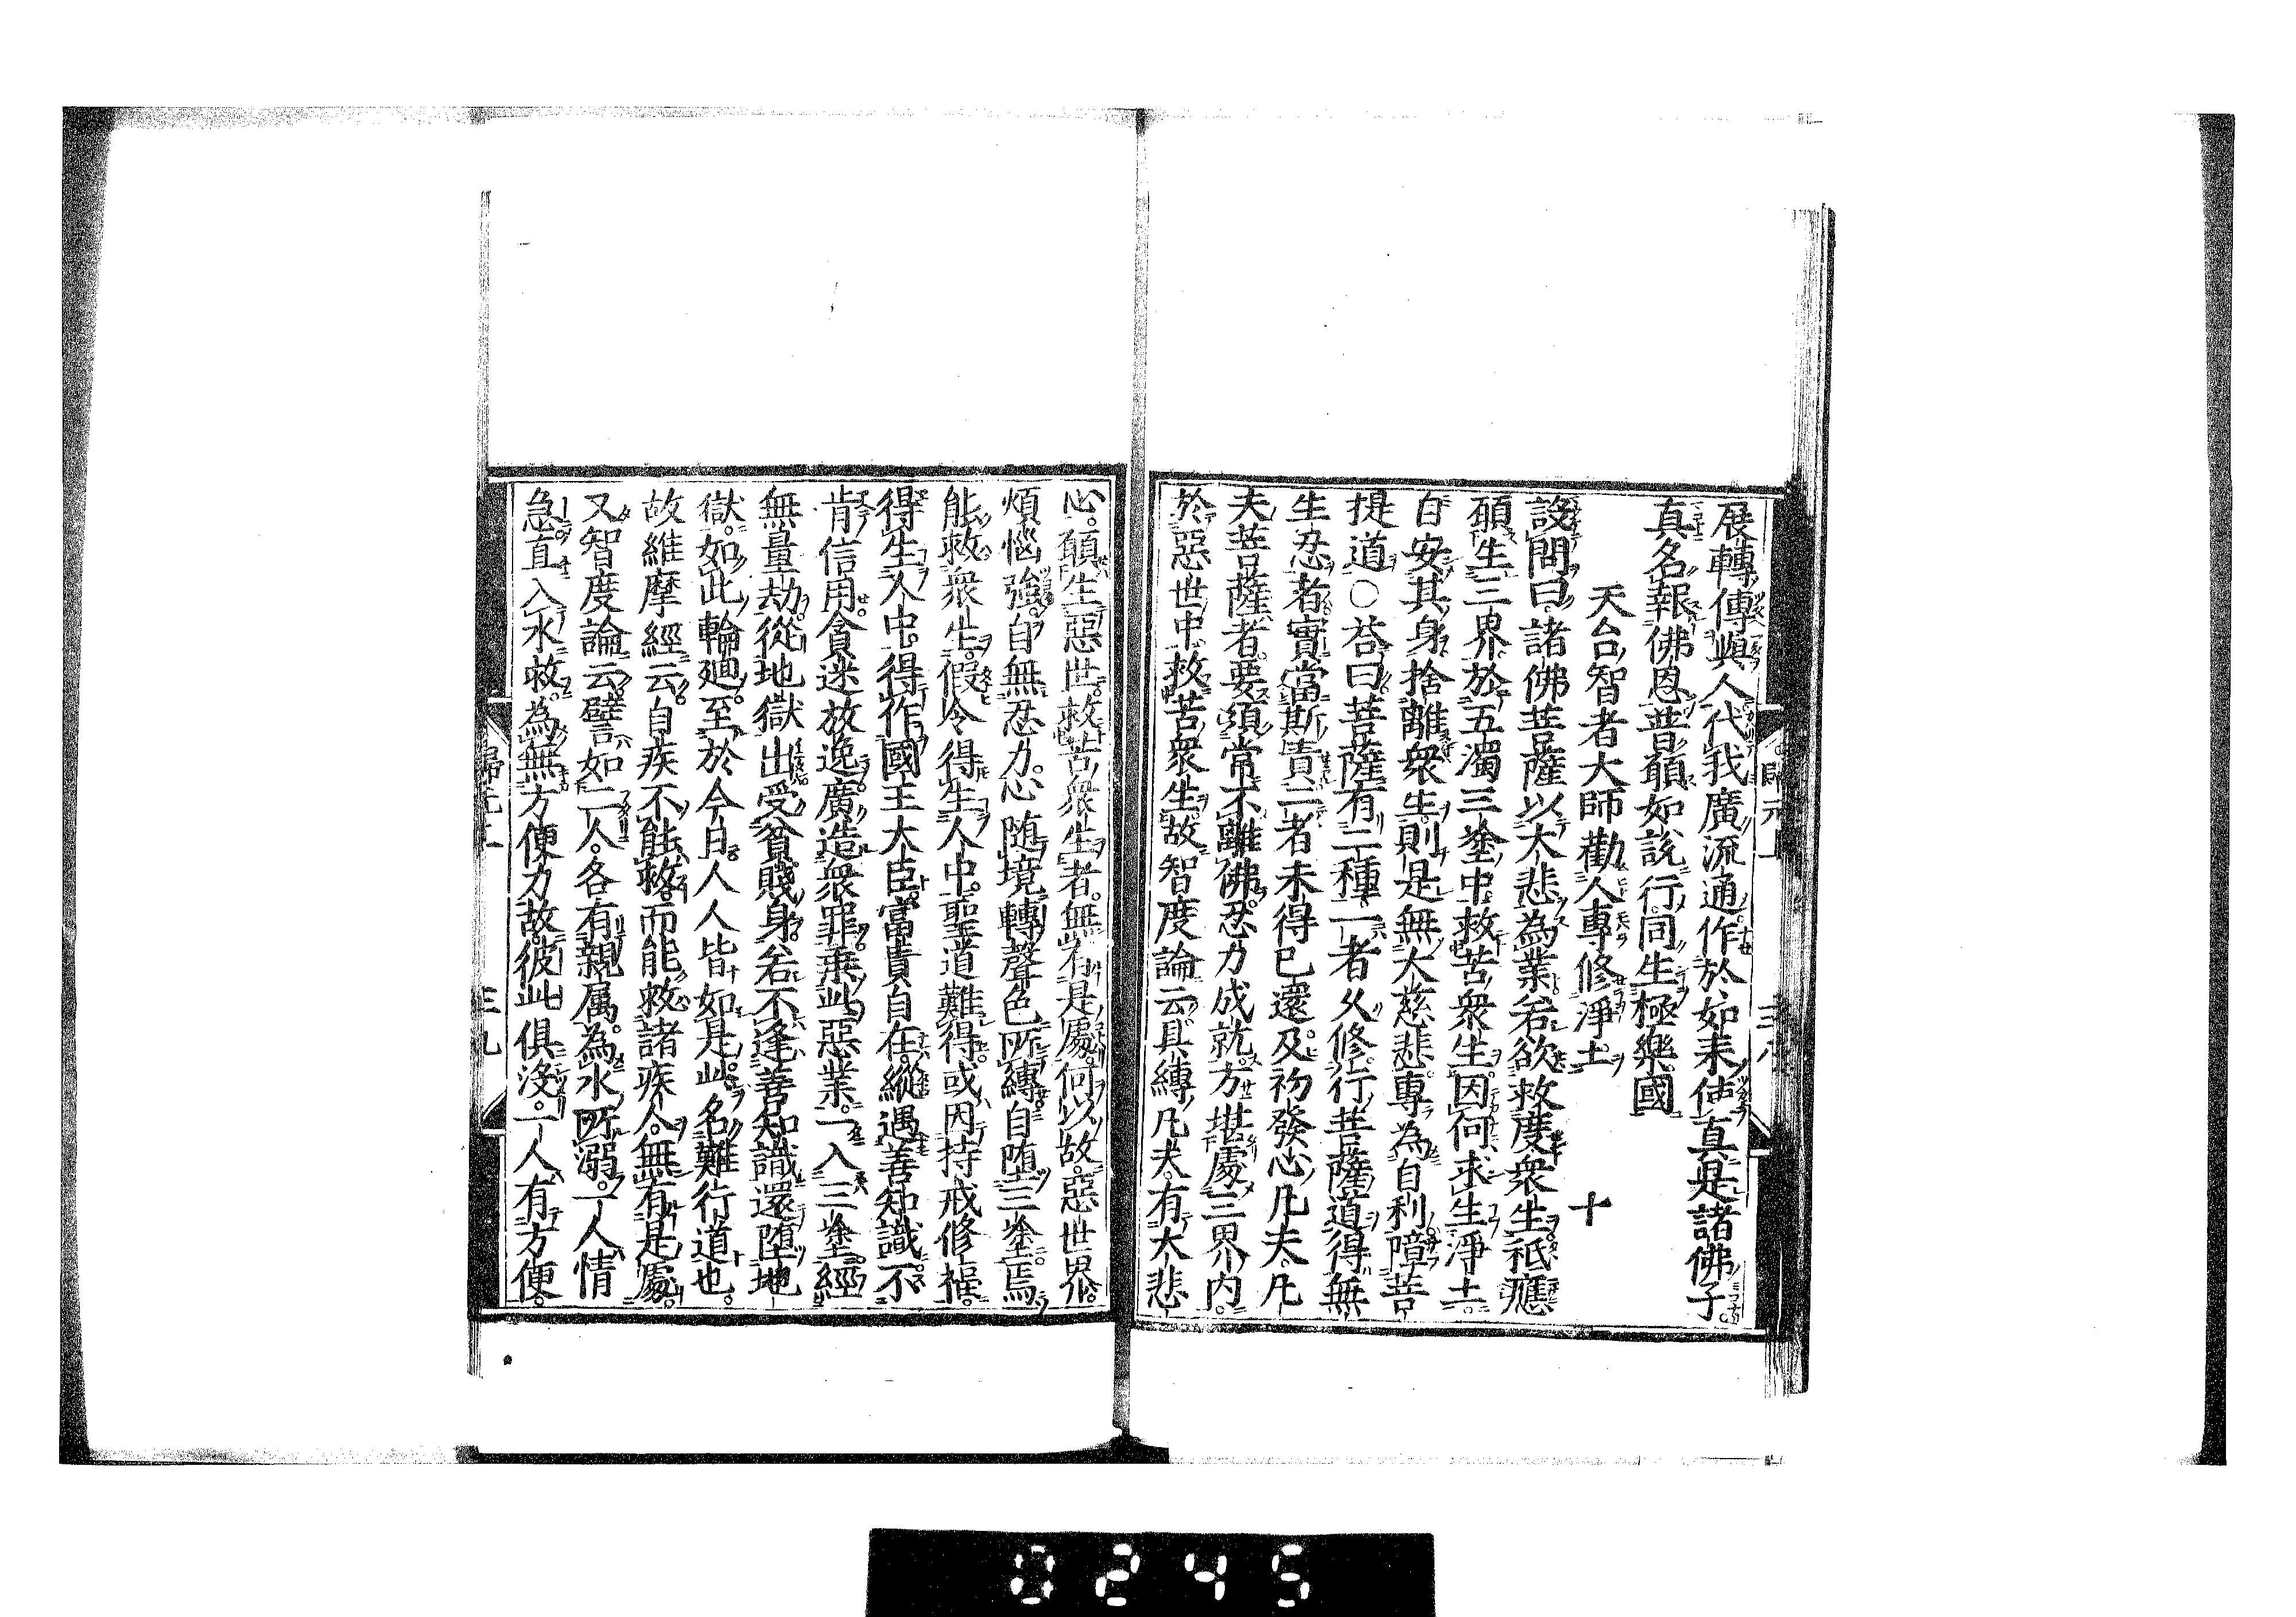 展轉傳與人代我廣流通作於如来使真是諸佛子。
真名報佛恩普願如説行同生極樂國
天台智者大師勸人專修淨土 十
設問曰諸佛菩薩以大悲為業若欲救度衆生祇應
願生三界於五濁三塗中救苦衆生因何求生淨土。
自安其身捨離衆生則是無大慈悲專為自利障菩
提道○荅曰菩薩有二種一者久修行菩薩道得無
生忍者實當斯責二者未得已還及初發心凡夫凡
夫菩薩者要須常不離佛忍力成就方堪處三界内。
於惡世中救苦衆生故智度論云具縛凡夫有大悲
心。願生惡世救苦衆生者。無有是處何以故惡世界。
煩惱強。自無忍力。心随境轉聲色所縛自堕三塗焉
能救衆生。假令得生人中。聖道難得。或因持戒修福。
得生人中。得作國王大臣。富貴自在。縱遇善知識。不
肯信用。貪迷放逸廣造衆罪乗此惡業。一入三塗。經
無量劫。從地獄出受貧賤身。若不逢善知識還堕地
獄。如此輪廻。至於今日。人人皆如是此名難行道也。
故維摩經云。自疾不能救。而能救諸疾人。無有是處。
又智度論云。譬如二人。各有親属。為水所溺。一人情
急。直入水救。為無方便力故。彼此俱没。一人有方便。
歸元上 三八
歸元上 三九
0245